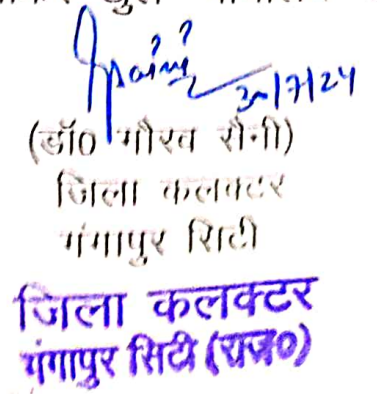 30/7/24
(डॉ० गौरव सैनी)
जिला कलक्टर
गंगापुर सिटी
जिला कलक्टर
गंगापुर सिटी (राज०)